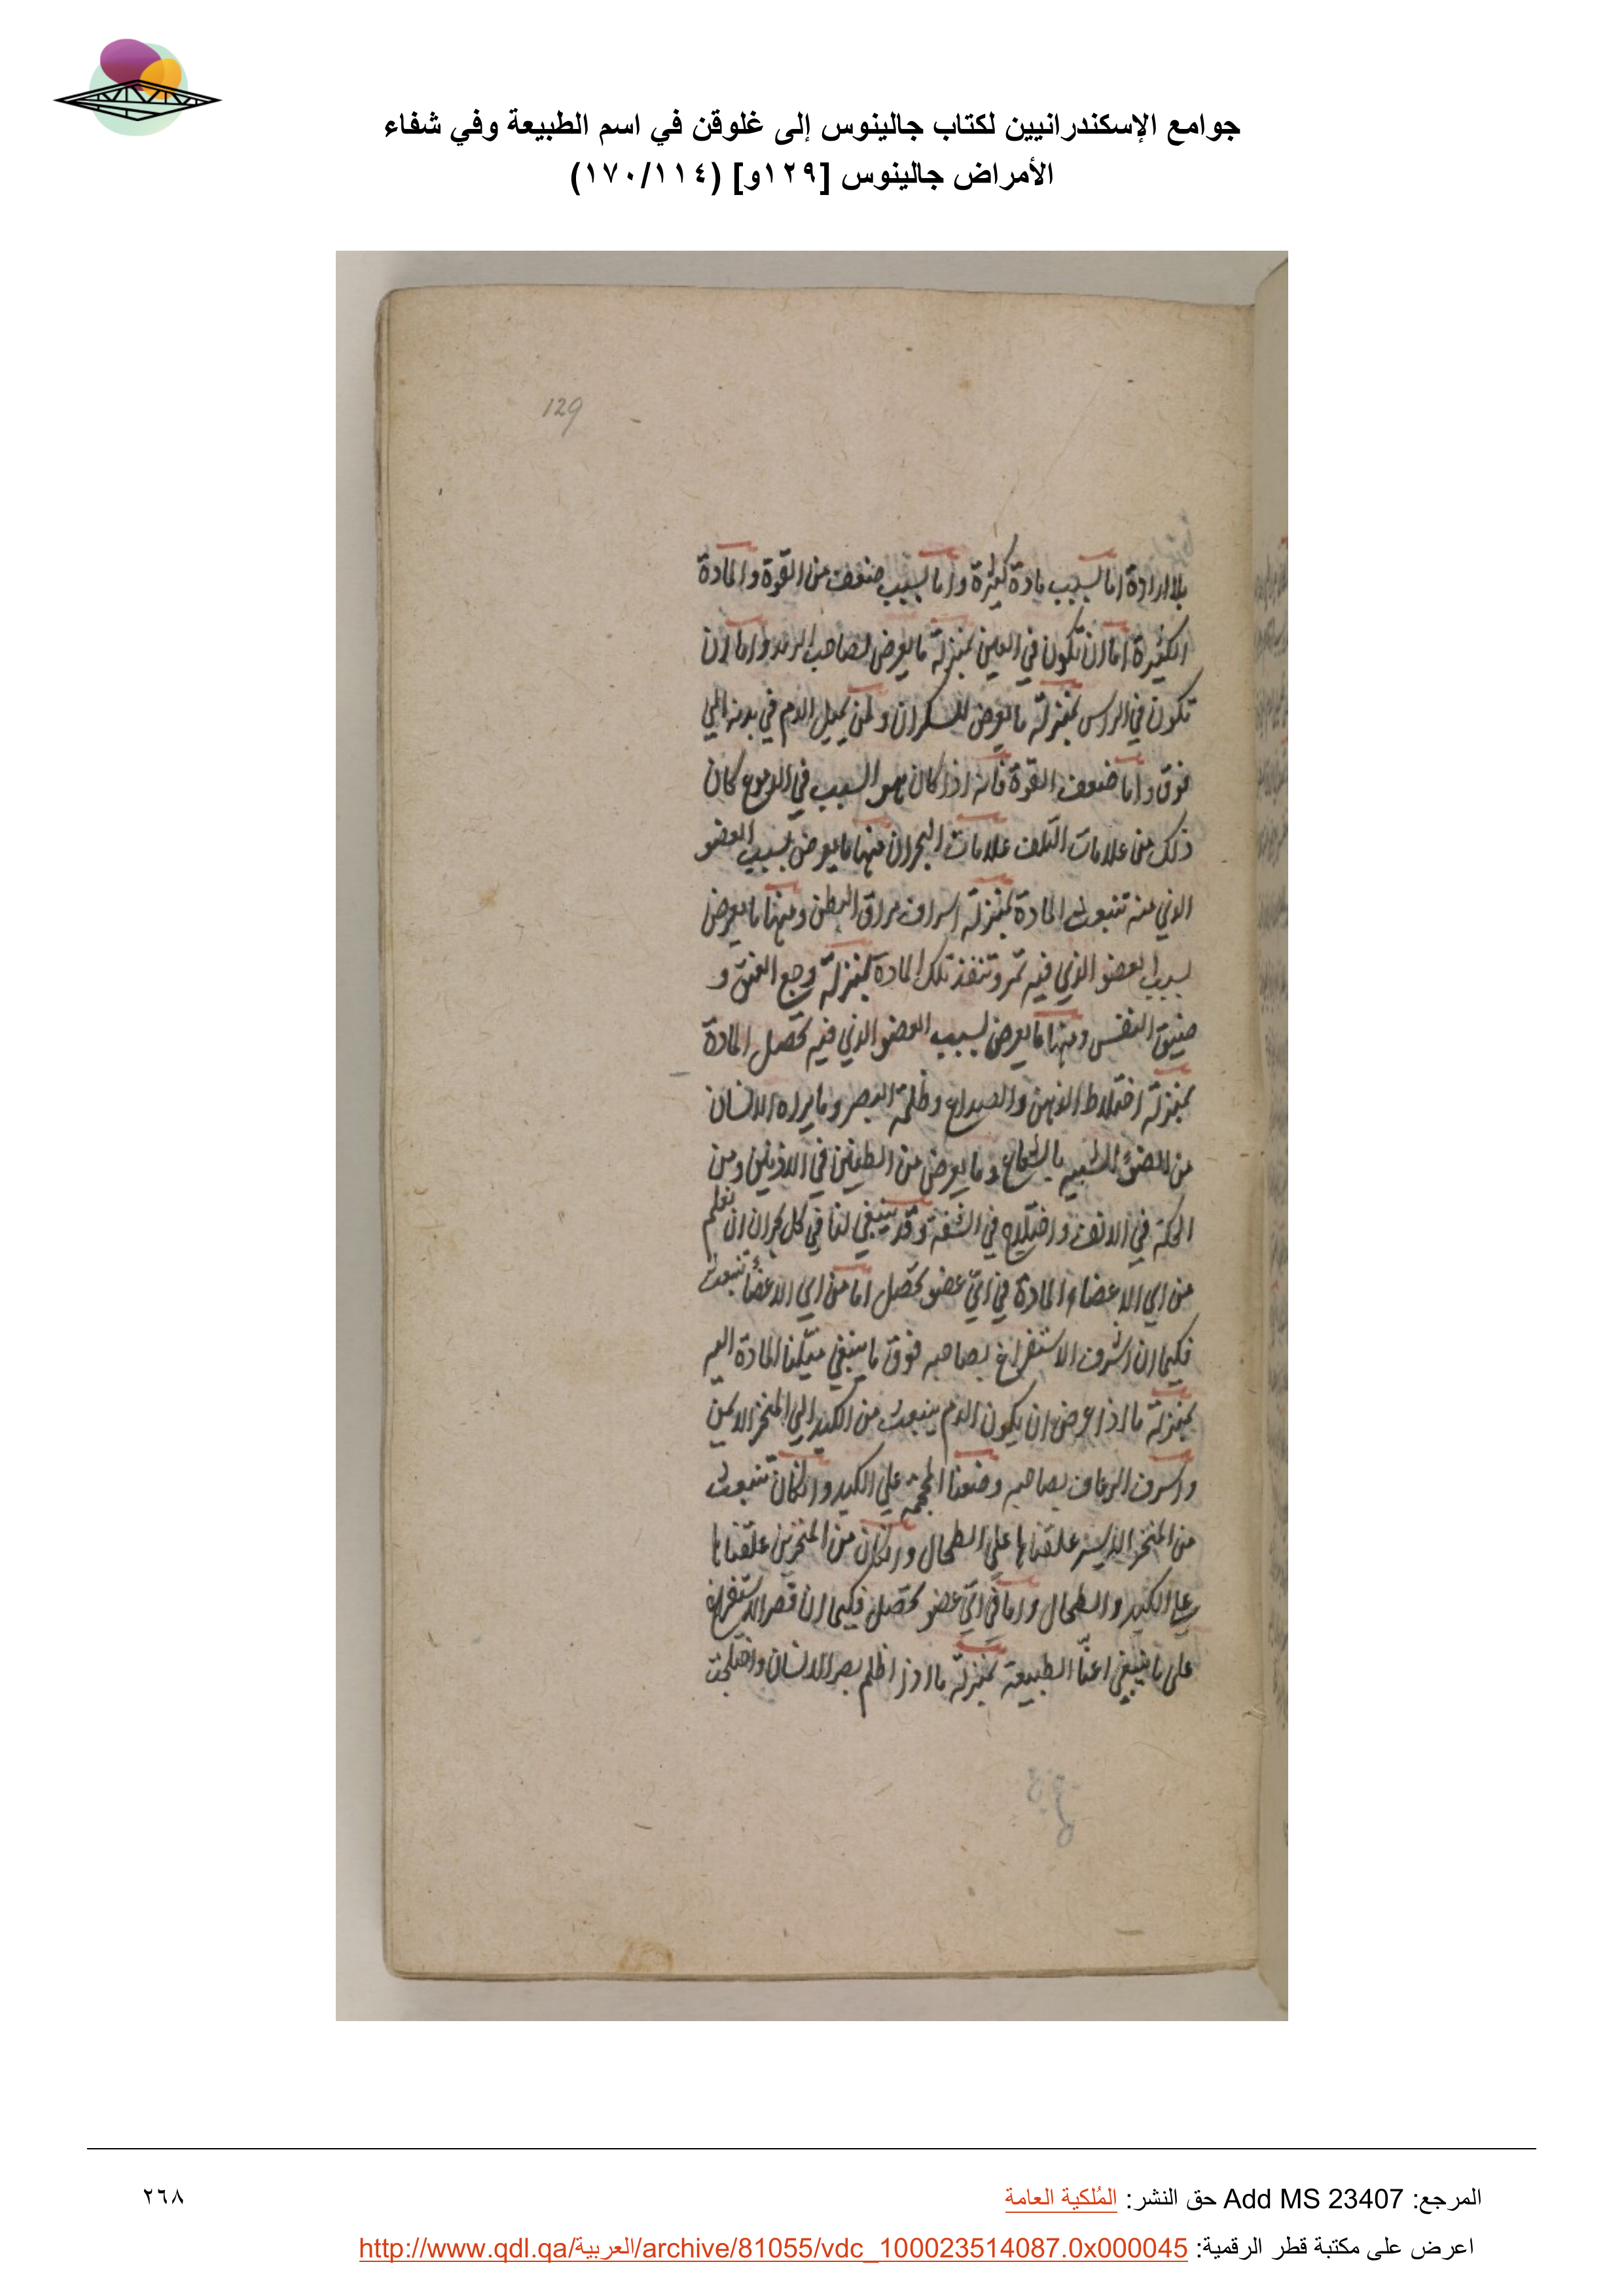 جوامع الإسكندرانيين لكتاب جالينوس إلى غلوقن في اسم الطبيعة وفي شفاء
الأمراض جالينوس [١٢٩و] (١٧٠/١١٤)
129
بلا ارادة اما لسبب مادة كثيرة واما لسبب ضعف من القوة والمادة
الكثيرة اما ان تكون في العين بمنزلة ما يعرض لصاحب الرمد واما ان
تكون في الراس بمنزلة ما يعرض للسكران ولمن يميل الدم في بدنه الي
فوق واما ضعف القوة فانه اذا كان هو السبب في الدموع كان
ذلك من علامات التلف علامات البحران منها ما يعرض بسبب العضو
الذي منه تنبعث المادة بمنزلة اسراف مراق البطن ومنها ما يعرض
بسبب العضو الذي فيه تمر وتنفذ تلك المادة بمنزلة وجع العنق و
ضيق النفس ومنها ما يعرض لسبب العضو الذي فيه تحصل المادة
بمنزلة اختلاط الذهن والصداع وظلمة البصر وما يراه الانسان
من الضوء الشبيه بالشعاع وما يعرض من الطنين في الاذنين ومن
الحكة في الانف واختلاج في الشفة وقد ينبغي لنا في كل بحران ان نعلم
من اي الاعضاء المادة في اي عضو تحصل اما من اي الاعضاء تنبعث
فكيما ان اشرف الاستفراغ بصاحبه فوق ما ينبغي ميلنا المادة اليه
بمنزلة ما اذا عرض ان يكون الدم ينبعث من الكبد الي المنخر الايمن
واسرف الرعاف بصاحبه وضعنا المحجمة علي الكبد وان كان تنبعث
من المنخر الايسر علقناها علي الطحال وان كان من المنخرين علقناها
علي الكبد والطحال واما في اي عضو تحصل فكيما ان قصر الاستفراغ
علي ما ينبغي اعنا الطبيعة بمنزلة ما اذا اظلم بصر الانسان واختلجت
المرجع: Add MS 23407 حق النشر: المُلكية العامة
٢٦٨
اعرض على مكتبة قطر الرقمية: http://www.qdl.qa/العربية/archive/81055/vdc_100023514087.0x000045